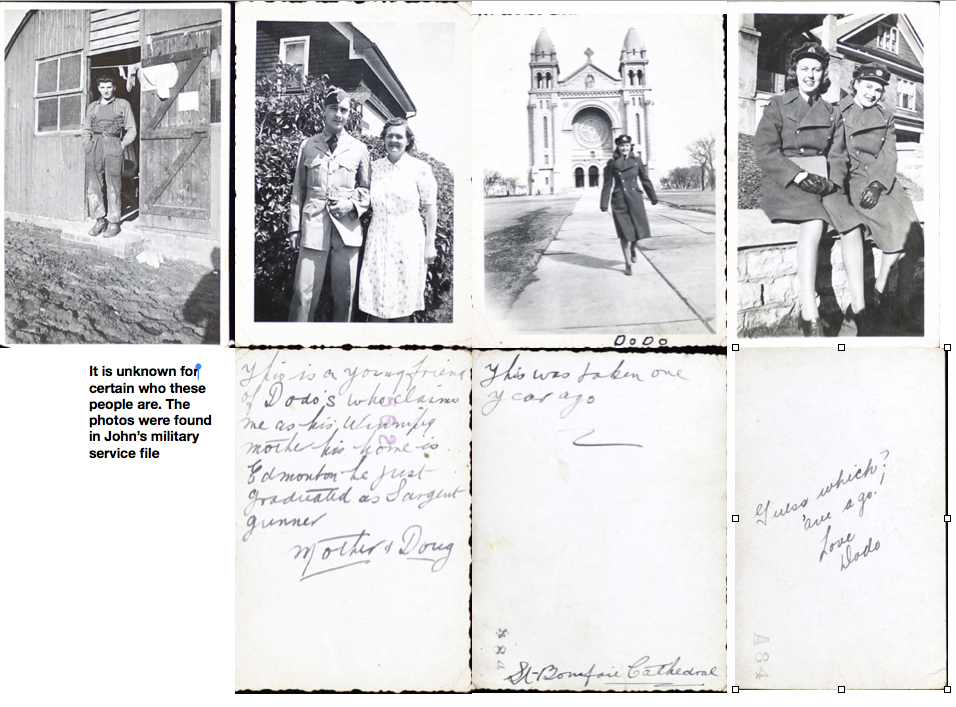 DoDo
It is unknown for
certain who these
people are. The
photos were found
in John's military
service file
This is a young friend
of Dodo's who claims
me as his Winnipeg
mother his home is
Edmonton he just
graduated as Sargent
gunner
Mother & Doug
This was taken one
year ago
St-Boniface Cathedral
Guess which?
ago!
Love
Dodo
A84